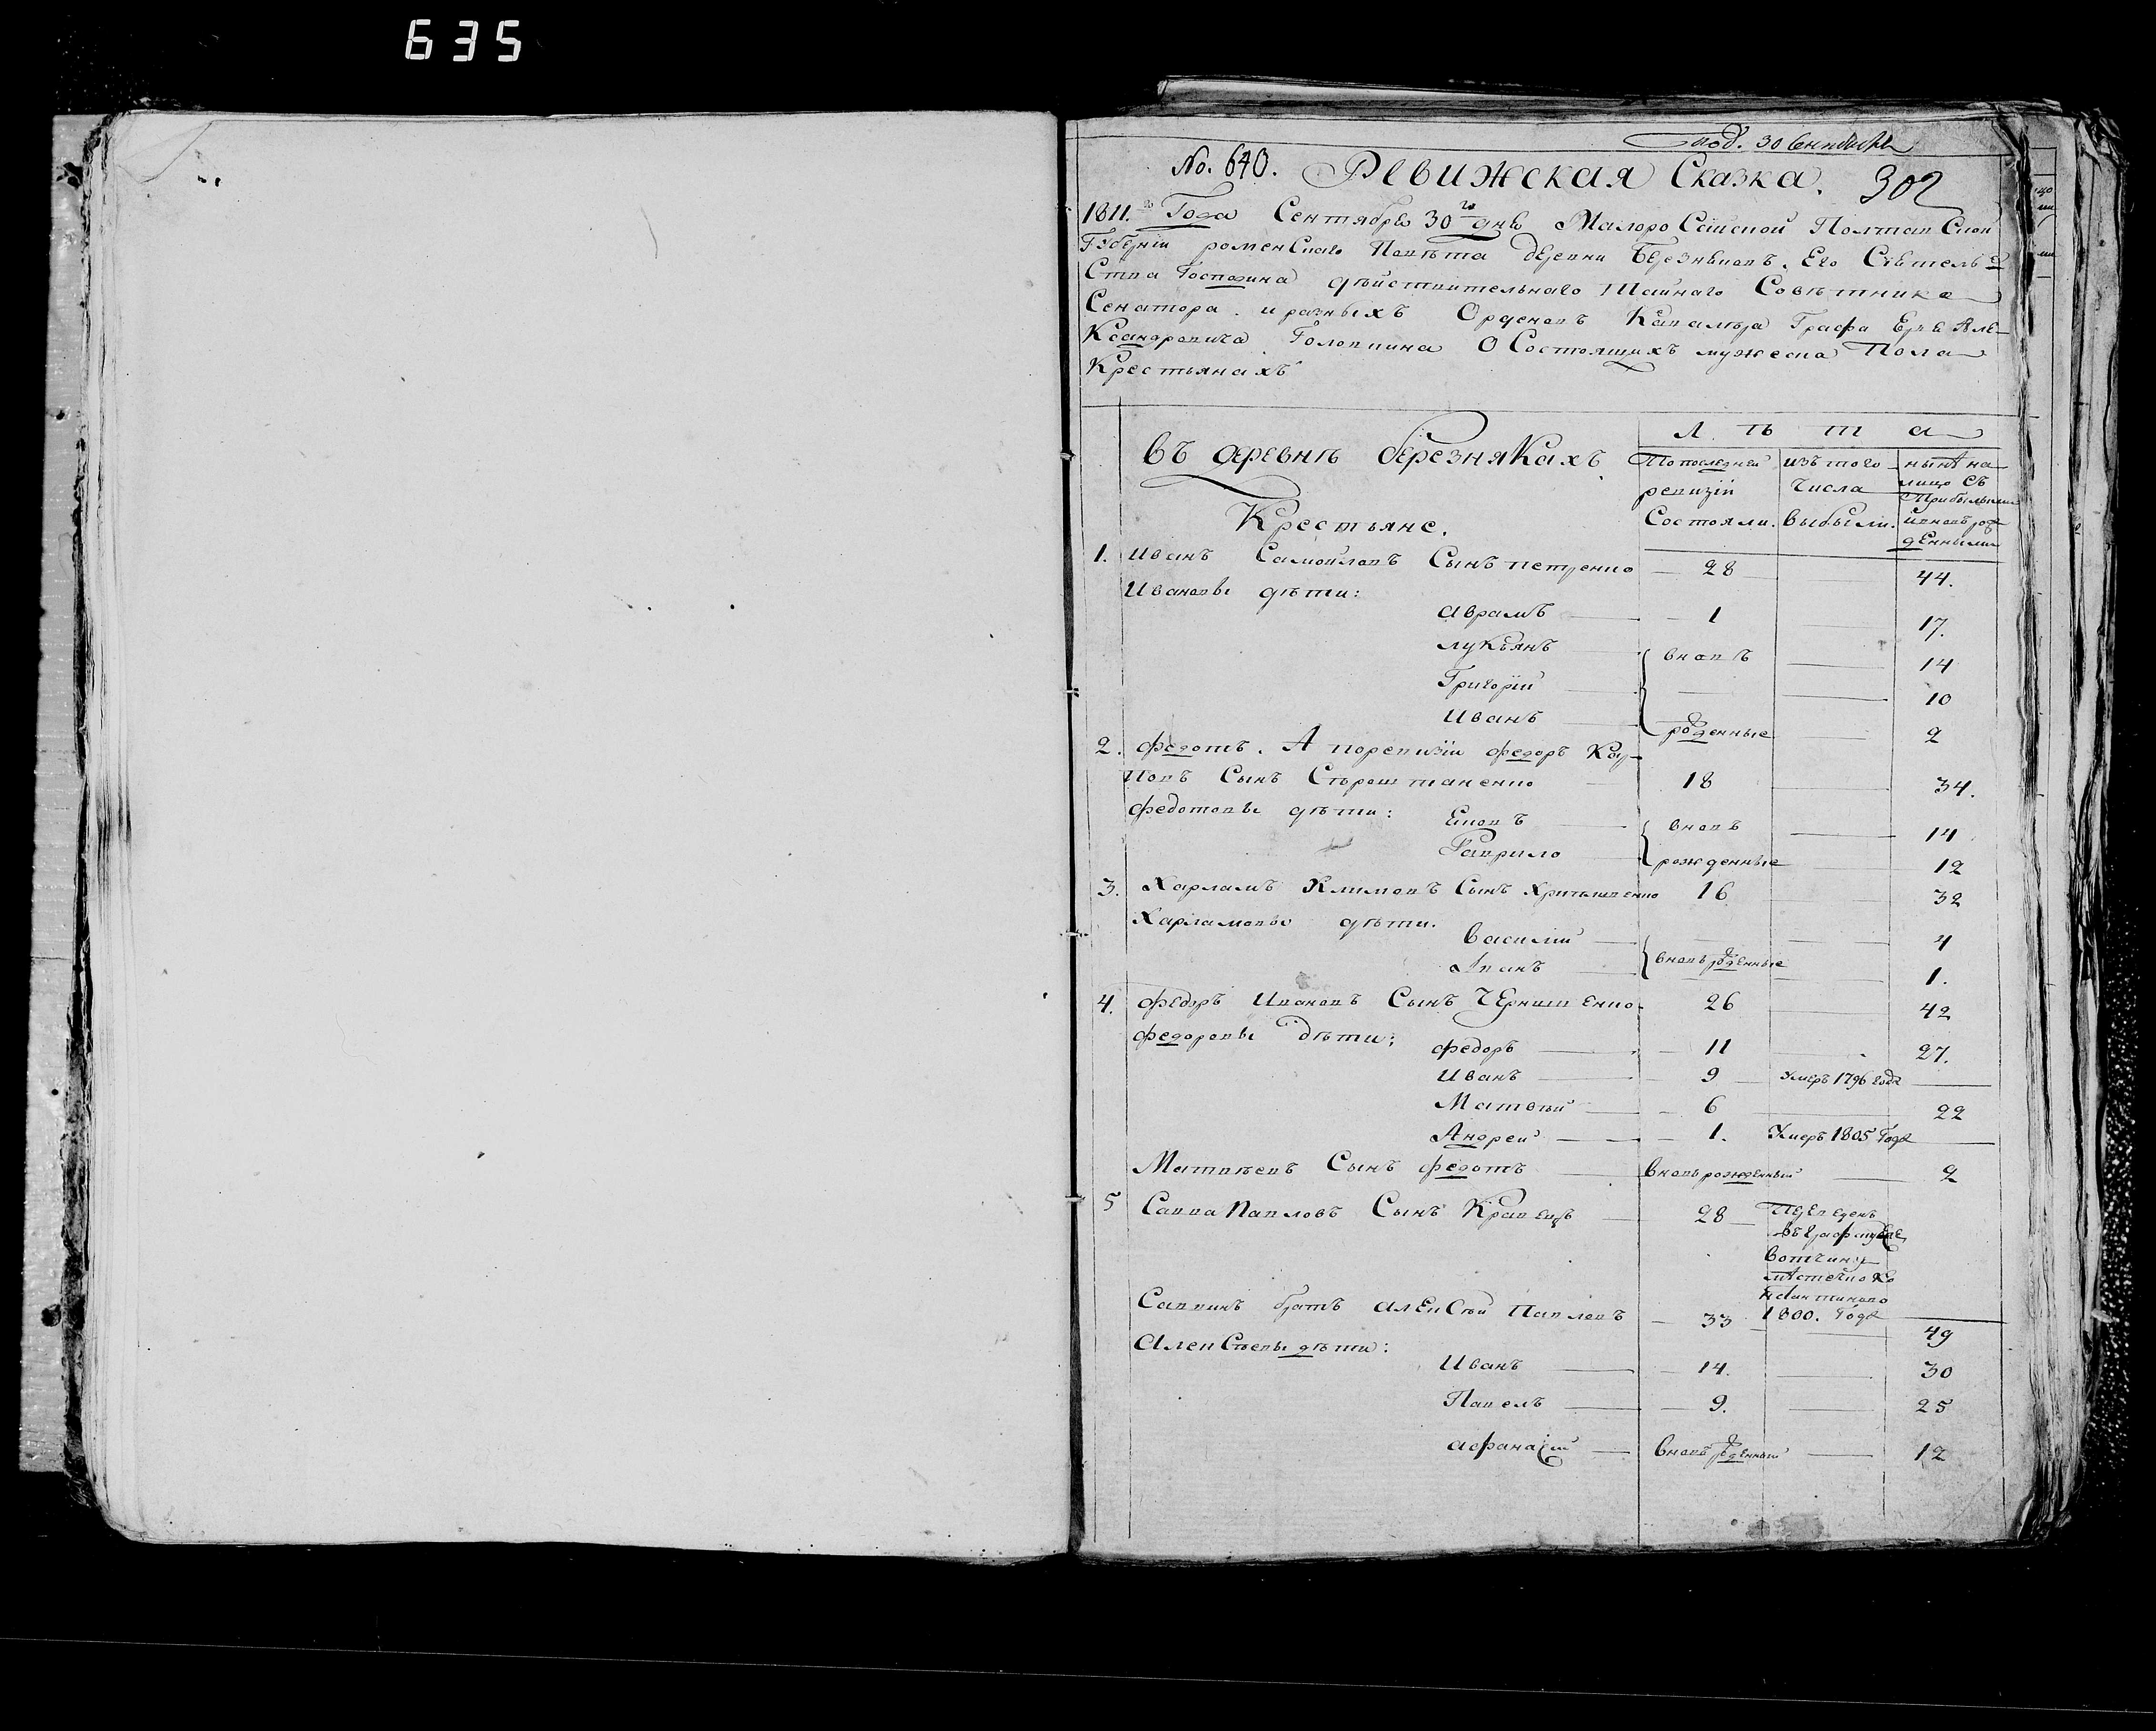 635
Под. 30 Сентября
No. 640. Ревижская Сказка. 302
1811.го Года Сентября 30го дня Малоросійской Полтавской
Губерніи роменскаго Повѣта деревни Березняковъ. Его Сіятель
ства Господина дѣйствительнаго Тайнаго Совѣтника
Сенатора. и разныхъ Орденовъ Кавалѣра Графа Юрія Але-
Ксандровича Головкина О Состоящихъ мужеска Пола
Крестьянахъ
Въ деревнѣ березнякахъ
Крестьяне.
Л ѣ т а
По последней ревизіи Состояли.
изъ того числа выбыли.
нынѣ на лицо съ Прибылыми и вновь рожденными
1. Иванъ Самойловъ Сынъ петренко — 28 44.
Ивановы дѣти:
Аврамъ — 1 — 17.
лукьянъ вновь — 14
Григорій — — 10
Иванъ рожденные — 2
2. федотъ. А поревизіи федоръ Кар-
повъ Сынъ Старош таненко — 18 — 34.
федотовы дѣти: Яковъ — вновь — 14
Гаврило рожденные 12
3. Харламъ Климовъ Сынъ 16 — 32
Харламовы дѣти.
Василій — — 4
Иванъ — вновь рожденные 1.
4. федоръ Ивановъ Сынъ Чернишенко. 26 — 42
федоровы дѣти:
федоръ — 11 — 27.
Иванъ — 9 — Умеръ 1796 года —
Матвѣй — 6 — 22
Андрей — 1. Умеръ 1805 Года —
Матвѣевъ Сынъ федотъ — вновь рожденный — 2
5 Савва Павловъ Сынъ Кравецъ — 28 — Переведенъ
въ
вотчину
мѣстечко Ко
нстантиново
1800. Года —
Саввинъ братъ Алексѣй Павловъ — 33 — 49
Алексѣевы дѣти:
Иванъ — 14. — 30
Павелъ — 9. — 25
Афанасій — вновь рожденный — 12